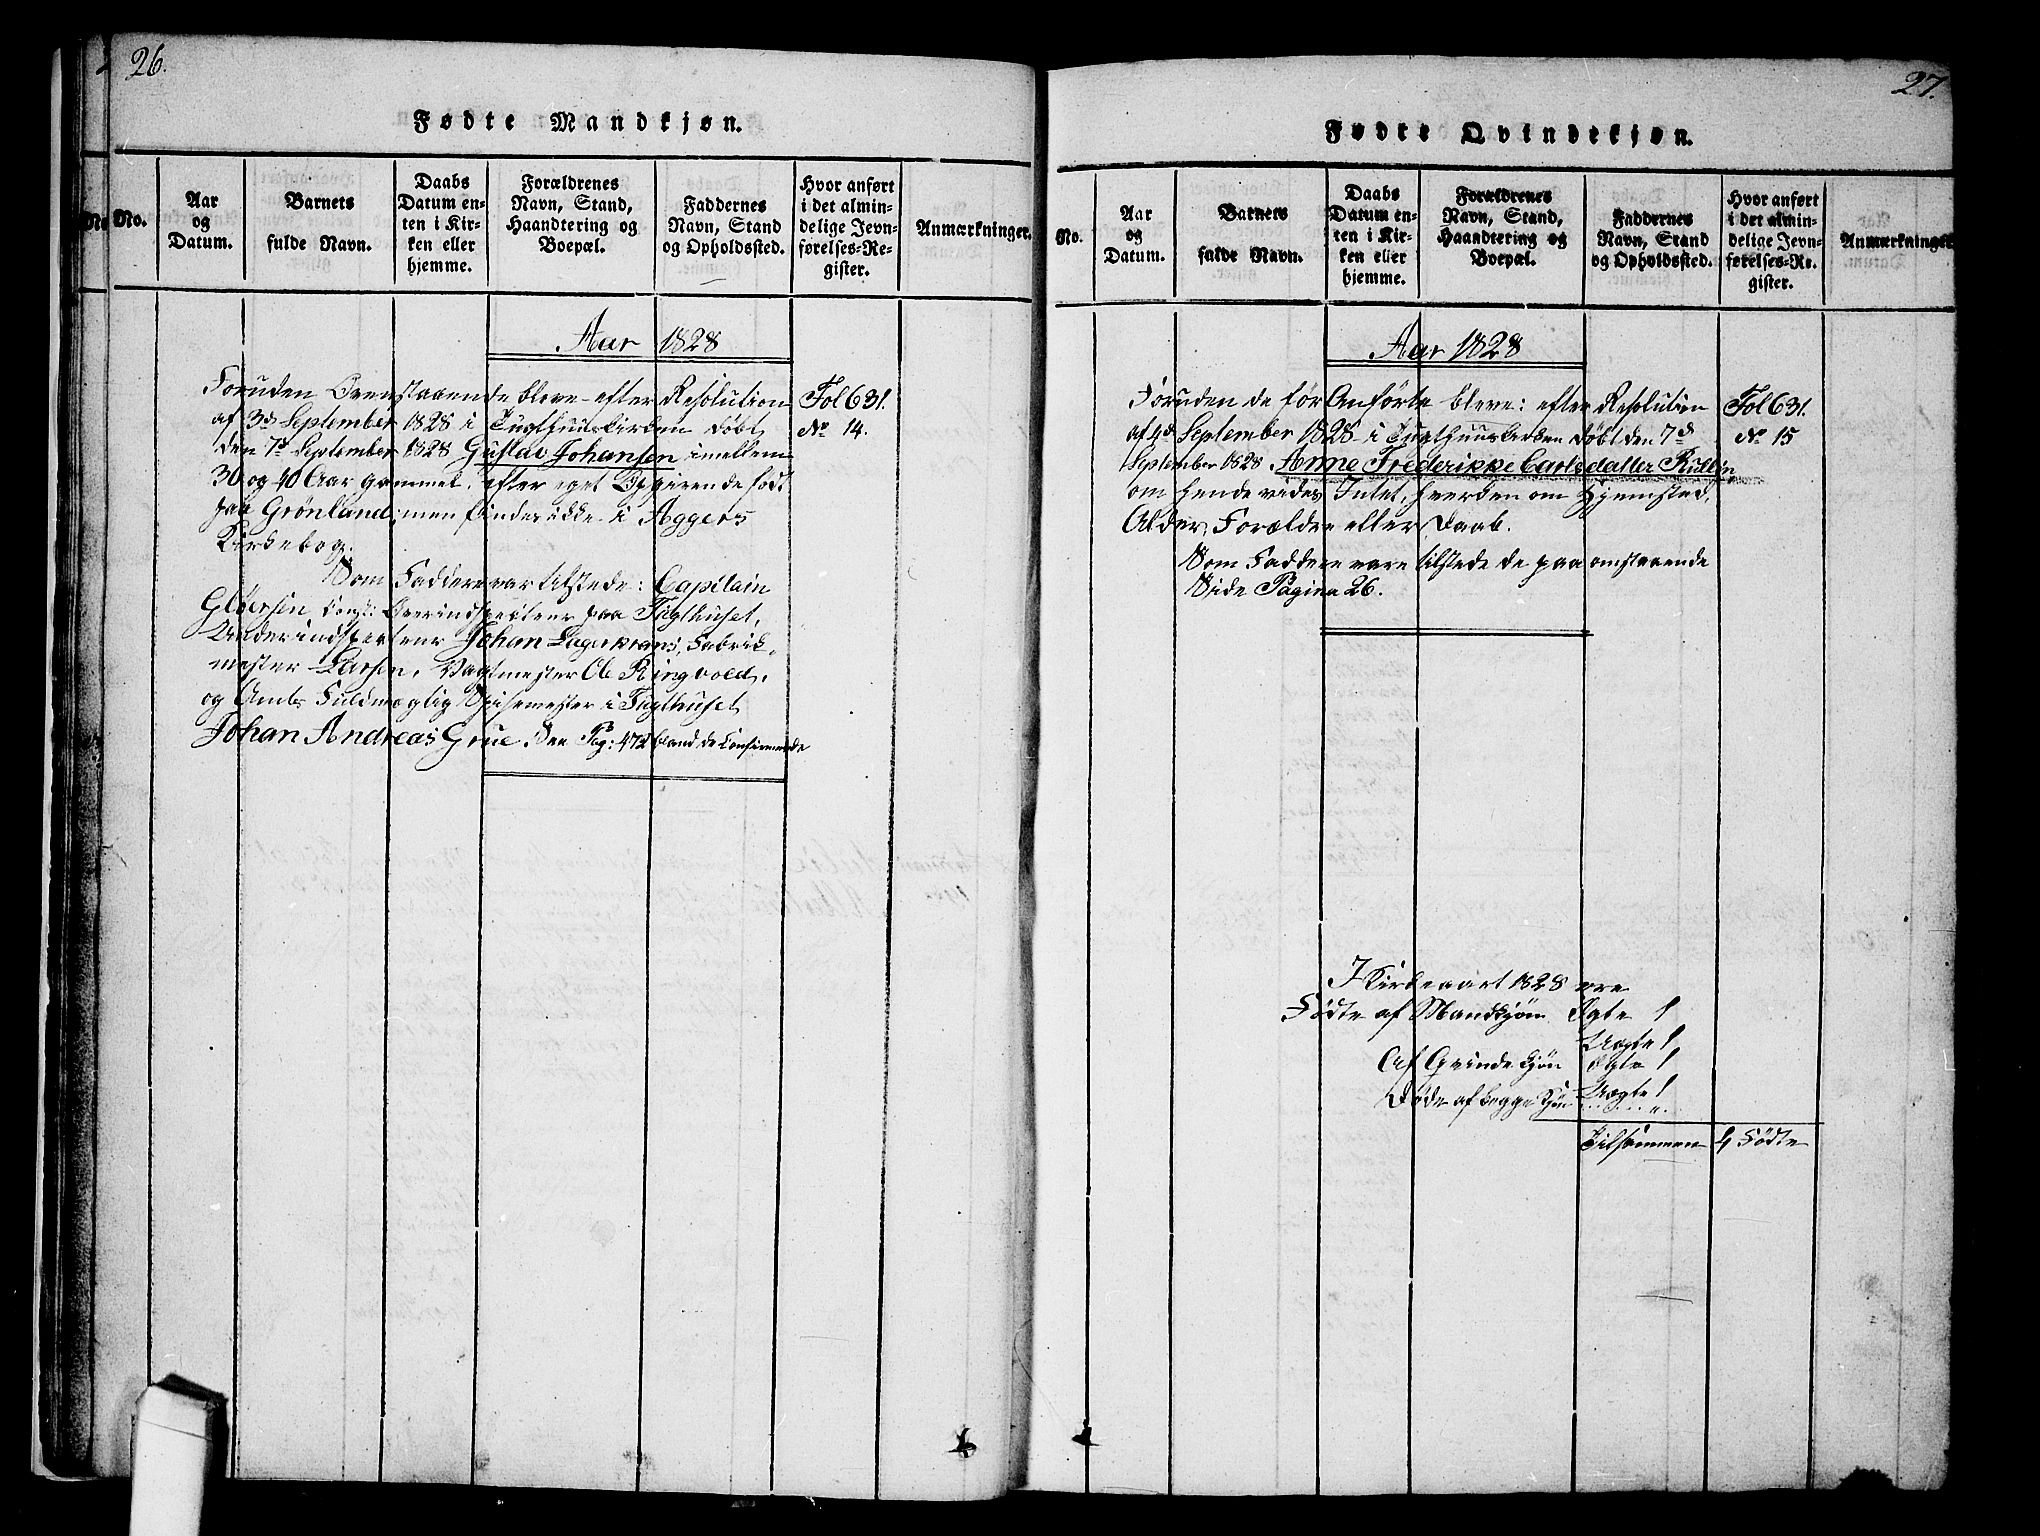 26.
Fødte Mandkjøn.
No.
Aar og Datum.
Barnets fulde Navn.
Daabs Datum enten i Kirken eller hjemme.
Forældrenes Navn, Stand, Haandtering og Boepæl.
Faddernes Navn, Stand og Opholdssted.
Hvor anført i det almindelige Jevnførelses-Register.
Anmærkninger.
Aar 1828
Foruden Ovenstaaende bleve efter Resolution Fol 631.
af 3d September 1828 i Tugthuuskirken døbt No 14.
den 7d September 1828 Gustav Johansen imellem
30 og 40 Aar gammel, efter eget Opgivende født
paa Grønland, men findes ikke i Aggers
Kirkebog.
Som Faddere var tilstede: Capitain
Gløersen, Overinspecteur paa Tugthuset,
Underinspecteur Johan Lagerkrans, Fabrik-
mester Larsen, Vagtmester Ole Ringvold,
og Amts Fuldmægtig Spisemester i Tugthuset
Johan Andreas Grue. See Pag: 472 bland de Confirmerede
27.
Fødte Qvindekjøn.
No.
Aar og Datum.
Barnets fulde Navn.
Daabs Datum enten i Kirken eller hjemme.
Forældrenes Navn, Stand, Haandtering og Boepæl.
Faddernes Navn, Stand og Opholdssted.
Hvor anført i det almindelige Jevnførelses-Register.
Anmærkninger
Aar 1828
Foruden de før Anførte bleve: efter Resolution Fol 631.
af 4d September 1828 i Tugthuuskirken døbt den 7d No 15
September 1828 Anne Frederikke Carlsdatter
om hende vides Intet, hverken om Hjemsted,
Alder, Forældre eller Daab.
Som Faddere vare tilstede de paa omstaaende
Side Pagina 26.
I Kirkeaaret 1828 ere
Fødte af Mandkjøn Ægte 1
Uægte 1
Af Qvindekjøn Ægte 1
Uægte 1
Døde af begge Kjøn
Tilsammen 4 Fødte